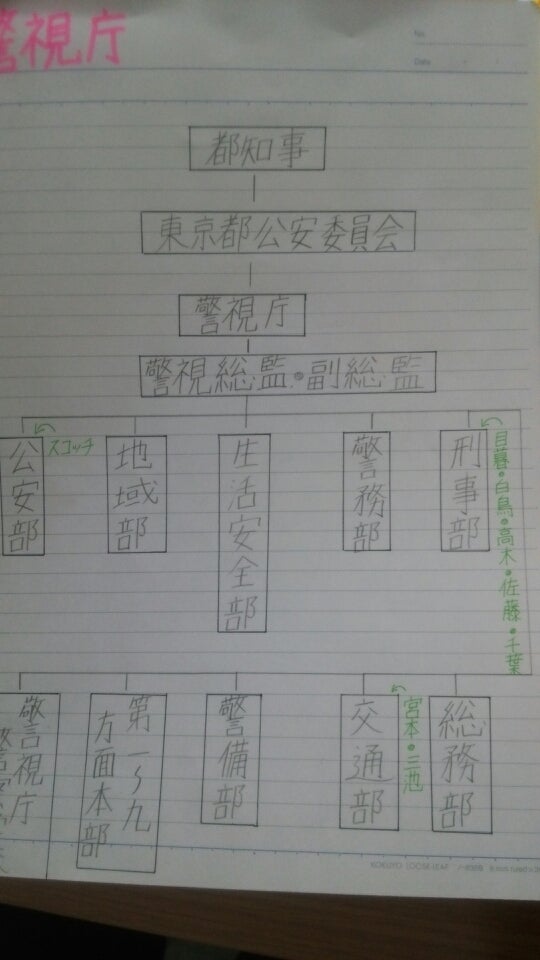 警視庁
No.
Date
都知事
東京都公安委員会
警視庁
警視総監・副総監
公安部
スコッチ
地域部
生活安全部
警務部
刑事部
目暮・白鳥・高木・佐藤・千葉
警視庁
第一〜九
方面本部
警備部
交通部
宮本・三池
総務部
KOKUYO LOOSE-LEAF